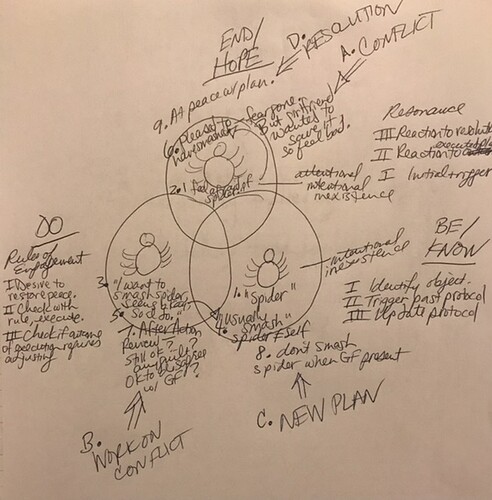 END/
HOPE
D. RESOLUTION
A. CONFLICT
9. At peace w/ plan.
6. pleased to
have smashed
fear gone.
But girlfriend
wants to
save it
so feel bad.
2. I feel afraid of
spider
attentional
intentional
inexistence
Resonance
III Reaction to
II Reaction to
I Initial trigger
DO
Rules of
Engagement
I Desire to
restore peace.
II Check with
rule, execute.
III Check if outcome
of execution requires
adjusting
3. "I want to
smash spider
5. So I do."
7. After Action
Review
Still OK?
OK to
w/ GF?
1. "Spider"
4. "usually
smash"
spider + self
8. don't smash
spider when GF present
intentional
inexistence
BE/
KNOW
I Identify object.
II Trigger past protocol
III Update protocol
B. WORK ON
CONFLICT
C. NEW PLAN